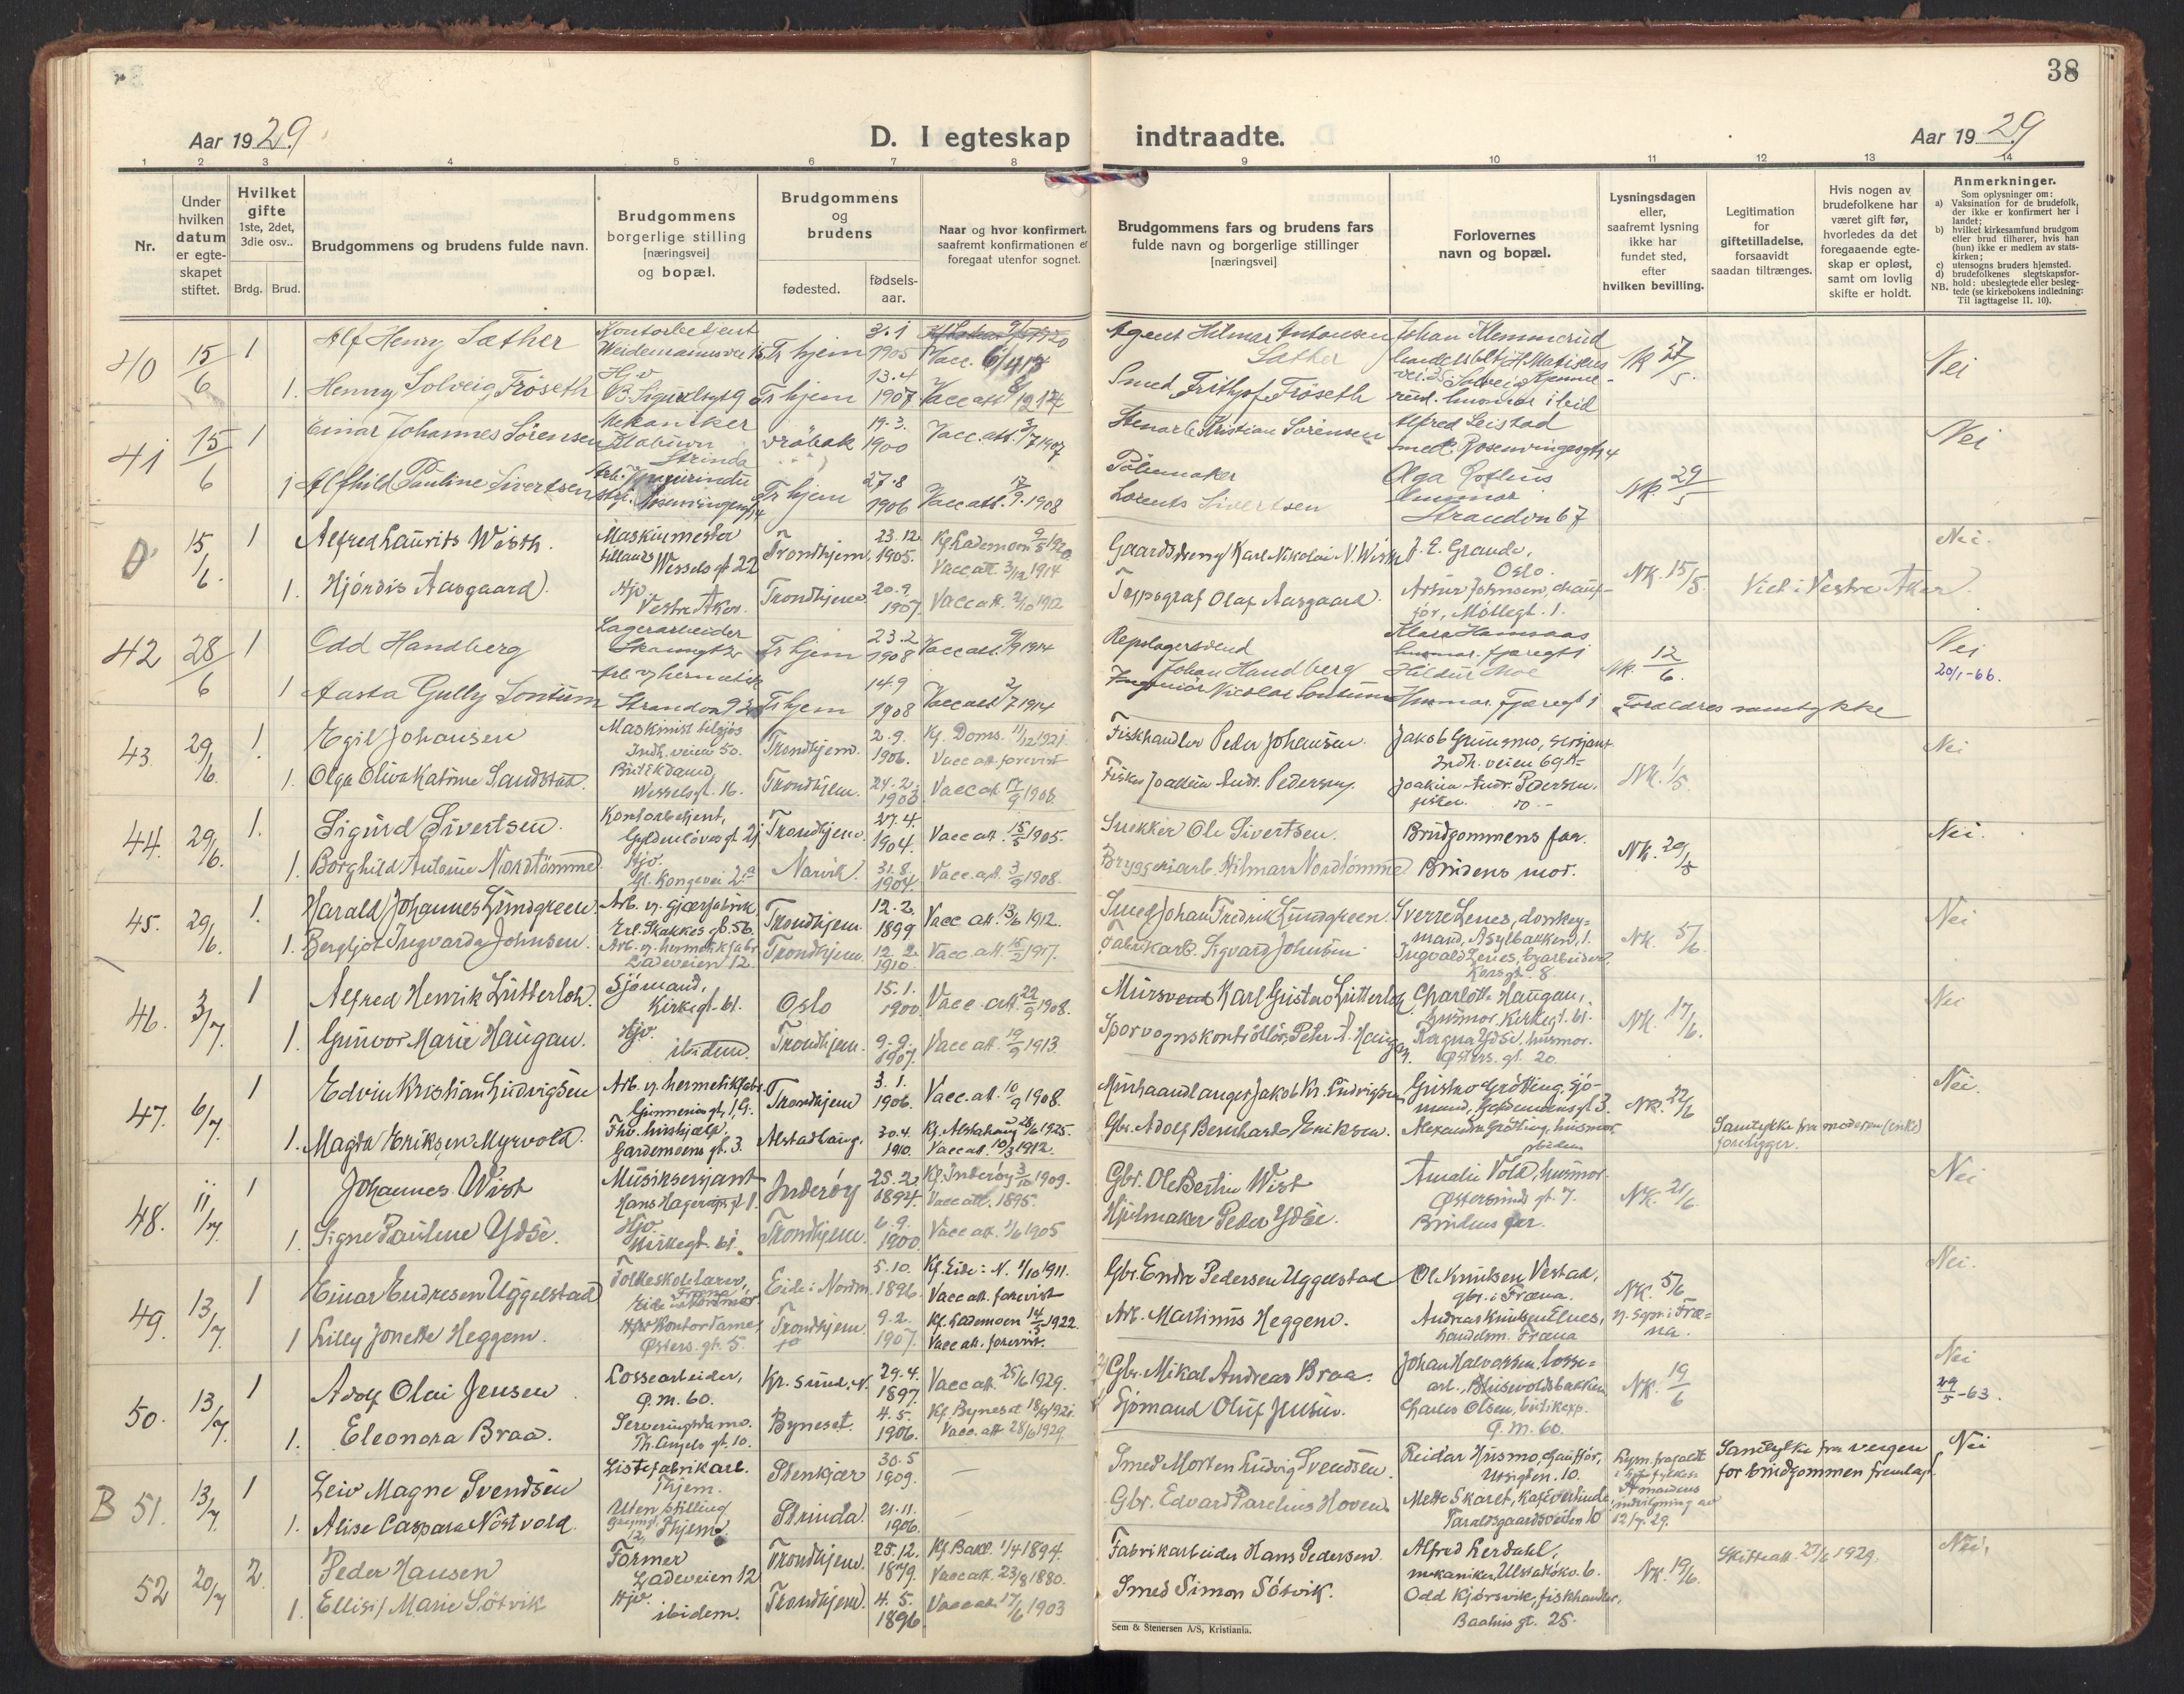 38
Aar 1929
D. I egteskap indtraadte.
Aar 1929
1 2 3 4 5 6 7 8 9 10 11 12 13 14
Nr.
Under hvilken datum er egte-skapet stiftet.
Hvilket gifte 1ste, 2det, 3die osv..
Brdg. Brud.
Brudgommens og brudens fulde navn.
Brudgommens borgerlige stilling [næringsvei] og bopæl.
Brudgommens og brudens
fødested.
fødsels-aar.
Naar og hvor konfirmert, saafremt konfirmationen er foregaat utenfor sognet.
Brudgommens fars og brudens fars fulde navn og borgerlige stillinger [næringsvei]
Forlovernes navn og bopæl.
Lysningsdagen eller, saafremt lysning ikke har fundet sted, efter hvilken bevilling.
Legitimation for giftetilladelse, forsaavidt saadan tiltrænges.
Hvis nogen av brudefolkene har været gift før, hvorledes da det foregaaende egte-skap er opløst, samt om lovlig skifte er holdt.
Anmerkninger.
Som oplysninger om:
a) Vaksination for de brudefolk, der ikke er konfirmert her i landet;
b) hvilket kirkesamfund brudgom eller brud tilhører, hvis han (hun) ikke er medlem av stats-kirken;
c) utensogns bruders hjemsted.
d) brudefolkenes slegtskapsfor-hold: ubeslegtede eller beslegtede (se kirkebokens indledning: Til iagttagelse II. 10).
NB.
40 15/6 1 Alf Henry Sæther Kontorbetjent Tr hjem 3.1 1905 Vacc. Agent Hilmar Antonsen Sæther Johan Klemmerud Nei
1. Henny Solveig Fröseth Hjv Tr hjem 13.4 1907 Vacc att Smed Frithjof Fröseth
41 15/6 1 Einar Johannes Sörensen Mekaniker Strinda Dröbak 19.3. 1900 Vacc. att. 3/7 1907 Stenarb Kristian Sorensen Alfred Leistad Nei
1 Alfhild Pauline Sivertsen Tr hjem 27.8 1906 Vacc att. 17/9. 1908 Lorents Sivertsen Olga husmor Strandvn 67 NK. 29/5
0 15/6. 1 Alfred Laurits Wisth. Maskinmester Wessels gt 22 Trondhjem. 23.12 1905. Kf. Lademoen 9/5 1920. Vacc. att. 3/12 1914 Gaardsdreng Karl Nikolai N. Wisth J. E. Grande, Oslo. NK. 15/5 Viet i Vestre Aker. Nei.
1. Hjördis Aasgaard. Hjv. Vestre Aker. Trondhjem 20.9. 1907 Vacc att. 2/10 1912 Typograf Olaf Aasgaard. Artur Johnsen, chauf-för, Möllegt. 1.
42 28/6 1 Odd Handberg Lagerarbeider Tr hjem 23.2 1908 Vacc att. 9/9 1914 Repslagersvend Johan Handberg Klara husmor. Fjæregt 1 NK. 12/6. Nei 20/1-66.
1 Aasta Gully Sontum Arb. v hermetik Tr hjem 14.9 1908 Vacc att 2/7 1914 Ingeniör Nicolai Sontum Hildur Moe Husmor. Fjæregt 1 Foraldres samtykke
43 29/6. 1. Egil Johansen Maskinist tilsjös Indh. veien 50. Trondhjem. 2.9. 1906. Kf. Doms. 11/12 1921. Vacc att. forevist Fiskhandler Peder Johansen. Jakob Grünsmo, sersjant Indh. veien 69A- NK. 1/5. Nei
1. Olga Oliva Katrine Sandstad. Butikdame, Wesselsgt. 16. Trondhjem. 24.2. 1903 Vacc att 17/9 1908. Fisker Joakim Andr. Pedersen. Joakim Andr. Pedersen. fisker. do.-
44. 29/6. 1. Sigurd Sivertsen. Kontorbetjent, Gyldenlöves gt. 21 Trondhjem. 27.4. 1904. Vacc att. 15/5 1905. Snekker Ole Sivertsen. Brudgommens far. NK. 29/5 Nei.
1. Borghild Antonie Nordtömme. Hjv. Gl. Kongevei 2a Narvik. 31.8. 1904. Vacc. att. 3/9 1908. Bryggeriarb. Hilmar Nordtömme Brudens mor.
45. 29/6. 1. Harald Johannes Lundgreen. Arb. v. gjærfabrik, Erl. Skakkes gt. 56. Trondhjem. 12.2. 1899 Vacc att. 13/6 1912. Smed Johan Fredrik Lundgreen. Sverre Lenes, donkey-mand, Asylbakken, 1. NK. 5/6. Nei
1. Bergljot Ingvarda Johnsen. Arb. v. hermetikfabr Ladeveien 12. Trondhjem 12.2. 1910. Vacc. att. 15/2 1917. Fabrikarb. Sigvard Johnsen Ingvald Lenes, byarbeider, Korsgt. 8.
46. 3/7. 1 Alfred Henrik Lütterloh. Sjömand, Kirkegt. 61. Oslo 15.1. 1900 Vacc. att 22/9 1908. Mursvend Karl Gustav Lütterloh Charlotte Haugan, husmor, Kirkegt. 61. NK. 17/6. Nei
1. Gunvor Marie Haugan. Hjv. ibidem. Trondhjem. 9.9. 1907. Vacc att. 19/9 1913. Sporvognskontrollör, Peter A. Haugan. Ragna Ydse, husmor. Østers. gt. 20.
47. 6/7. 1 Edvin Kristian Ludvigsen Arb. v. hermetikfabr. Gunnerius gt. 1G. Trondhjem 3.1. 1906. Vacc. att. 10/9 1908. Murhaandlanger Jakob Kr. Ludvigsen Gustav Grötting, sjö-mand, Gardemoens gt 3. NK. 22/6 Nei.
1. Magda Eriksen Myrvold. Thv. hushjælp. Gardemoens gt. 3. Alstadhaug. 30.4. 1910. Kf. Alstahaug 28/6 1925. Vacc att. 10/3 1912. Gbr. Adolf Bernhard Eriksen. Alexandra Grötting, husmor ibidem Samtykke fra moderen (enke) foreligger.
48. 11/7. 1 Johannes Wist Musiksersjant Hans Hagerups gt 1. Inderöy 25.2 1894. Kf. Inderöy 3/10 1909. Vacc att. 1895. Gbr. Ole Bertin Wist Amalie Vold, husmor. Østersunds gt. 7. NK. 21/6. Nei
1. Signe Pauline Ydse. Hjv. Kirkegt. 61. Trondhjem. 6.9. 1900 Vacc att. 1/6 1905 Hjulmaker Peder Ydse. Brudens far.
49. 13/7. 1 Einar Endresen Uggelstad Folkeskolelærer, Fræna Eide i Nordm. 5.10. 1896. Kf. Eide: N. 1/10 1911. Vacc att. forevist Gbr. Endre Pedersen Uggelstad Ole Knutsen Vestad, gbr. i Fræna. NK. 5/6 Nei.
1 Lilly Jonette Heggem. Kontordame, Østers. gt. 5. Trondhjem. 9.2. 1907. Kf. Lademoen 14/5 1922. Vacc att. forevist. Arb. Martinus Heggem. Andreas Knutsen Elnes, handelsm. Fræna
50. 13/7. 1 Adolf Olai Jensen Lossearbeider, Q.M. 60. Kr.sund. N. 29.4. 1897. Vacc att. 25/6 1929. Gbr. Mikal Andreas Braa. Johan Halvorssen, losse=arb., Blusevoldsbakken NK. 19/6 Nei 29/5-63.
1. Eleonora Braa. Serveringsdame. Th. Angels gt. 10. Byneset. 4.5. 1906. Kf. Byneset 1921. Vacc. att 28/6 1929. Sjömand Oluf Jensen. Charles Olsen, butikexp. Q.M. 60.
B 51. 13/7. 1 Leiv Magne Svendsen Listefabrikarb. Thjem. Stenkjær 30.5 1909. — Smed Morten Ludvig Svendsen. Reidar Husmo, chaufför, Utsigten. 10. Samtykke fra vergen for brudgommen fremlagt. Nei
1. Alise Caspara Nöstvold. Uten stilling Thjem. Strinda. 21.11. 1906. — Gbr. Edvard Parelius Hoven. Mette Skaret, kafévertinde, 12/7. 29.
52 20/7 2. Peder Hansen Former Ladeveien 12 Trondhjem. 25.12. 1879. Kf. Bakl. 1/4 1894. Vacc att. 23/8 1880. Fabrikarbeider Hans Pedersen. Alfred Lerdahl, mekaniker, NK. 19/6. Skifteatt. 27/6 1929. Nei.
1. Ellisif Marie Sötvik Hjv. ibidem. Trondhjem. 4.5. 1896. Vacc att. 17/6 1903 Smed Simon Sötvik. Odd Kjörsvik, fiskhandler, Baahus gt. 25.
Sem & Stenersen A/S, Kristiania.